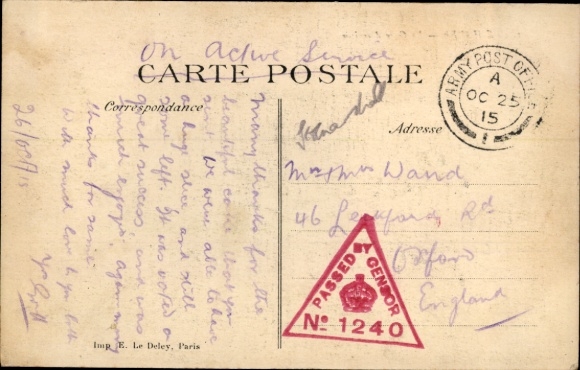 On Active Service
CARTE POSTALE
Correspondance
Adresse
ARMY POST OFFICE
A
OC 25
15
1
Mr & Mrs Ward
46 Leckford Rd
Oxford
England
PASSED BY CENSOR
No 1240
26/Oct/15
Many thanks for the
beautiful cake that you
sent. We were able to have
a huge slice and still
some left. It was voted a
great success, and was
much enjoyed. again many
thanks for same
With much love to you both
Yr
Imp E. Le Deley, Paris